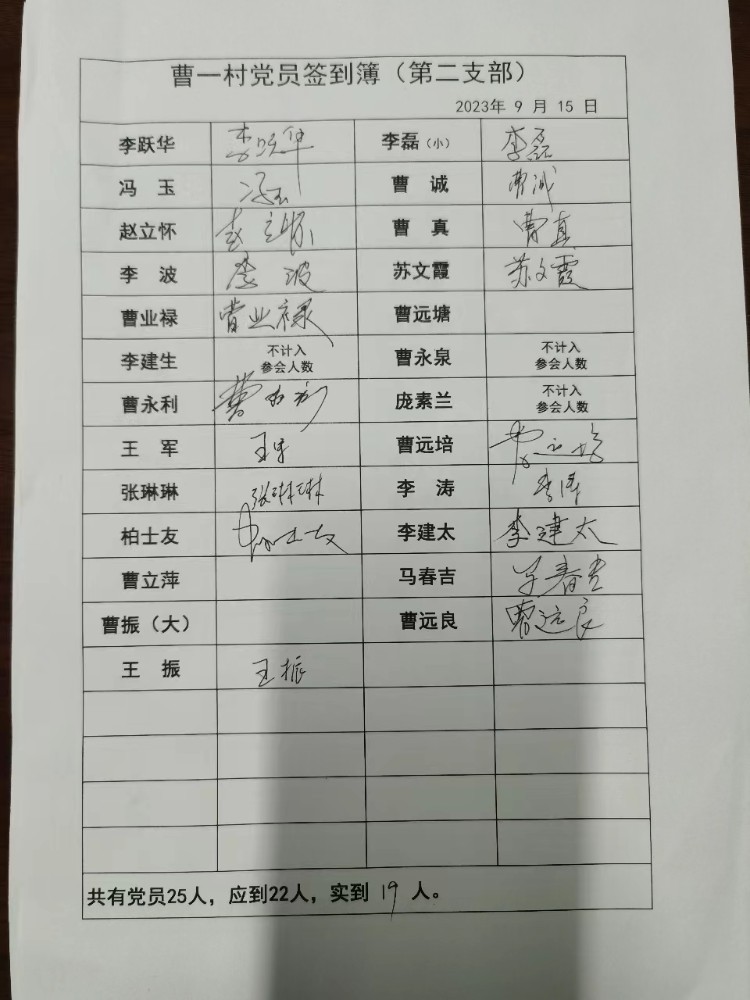 曹一村党员签到簿（第二支部）
2023年 9 月 15 日
李跃华 李跃华 李磊（小） 李磊
冯 玉 冯玉 曹 诚 曹诚
赵立怀 赵立怀 曹 真 曹真
李 波 李波 苏文霞 苏文霞
曹业禄 曹业禄 曹远塘
李建生 不计入 曹永泉 不计入
参会人数 参会人数
曹永利 曹永利 庞素兰 不计入
参会人数
王 军 王军 曹远培 曹远培
张琳琳 张琳琳 李 涛 李涛
柏士友 柏士友 李建太 李建太
曹立萍 马春吉 马春吉
曹振（大） 曹远良 曹远良
王 振 王振
共有党员25人，应到22人，实到 19 人。